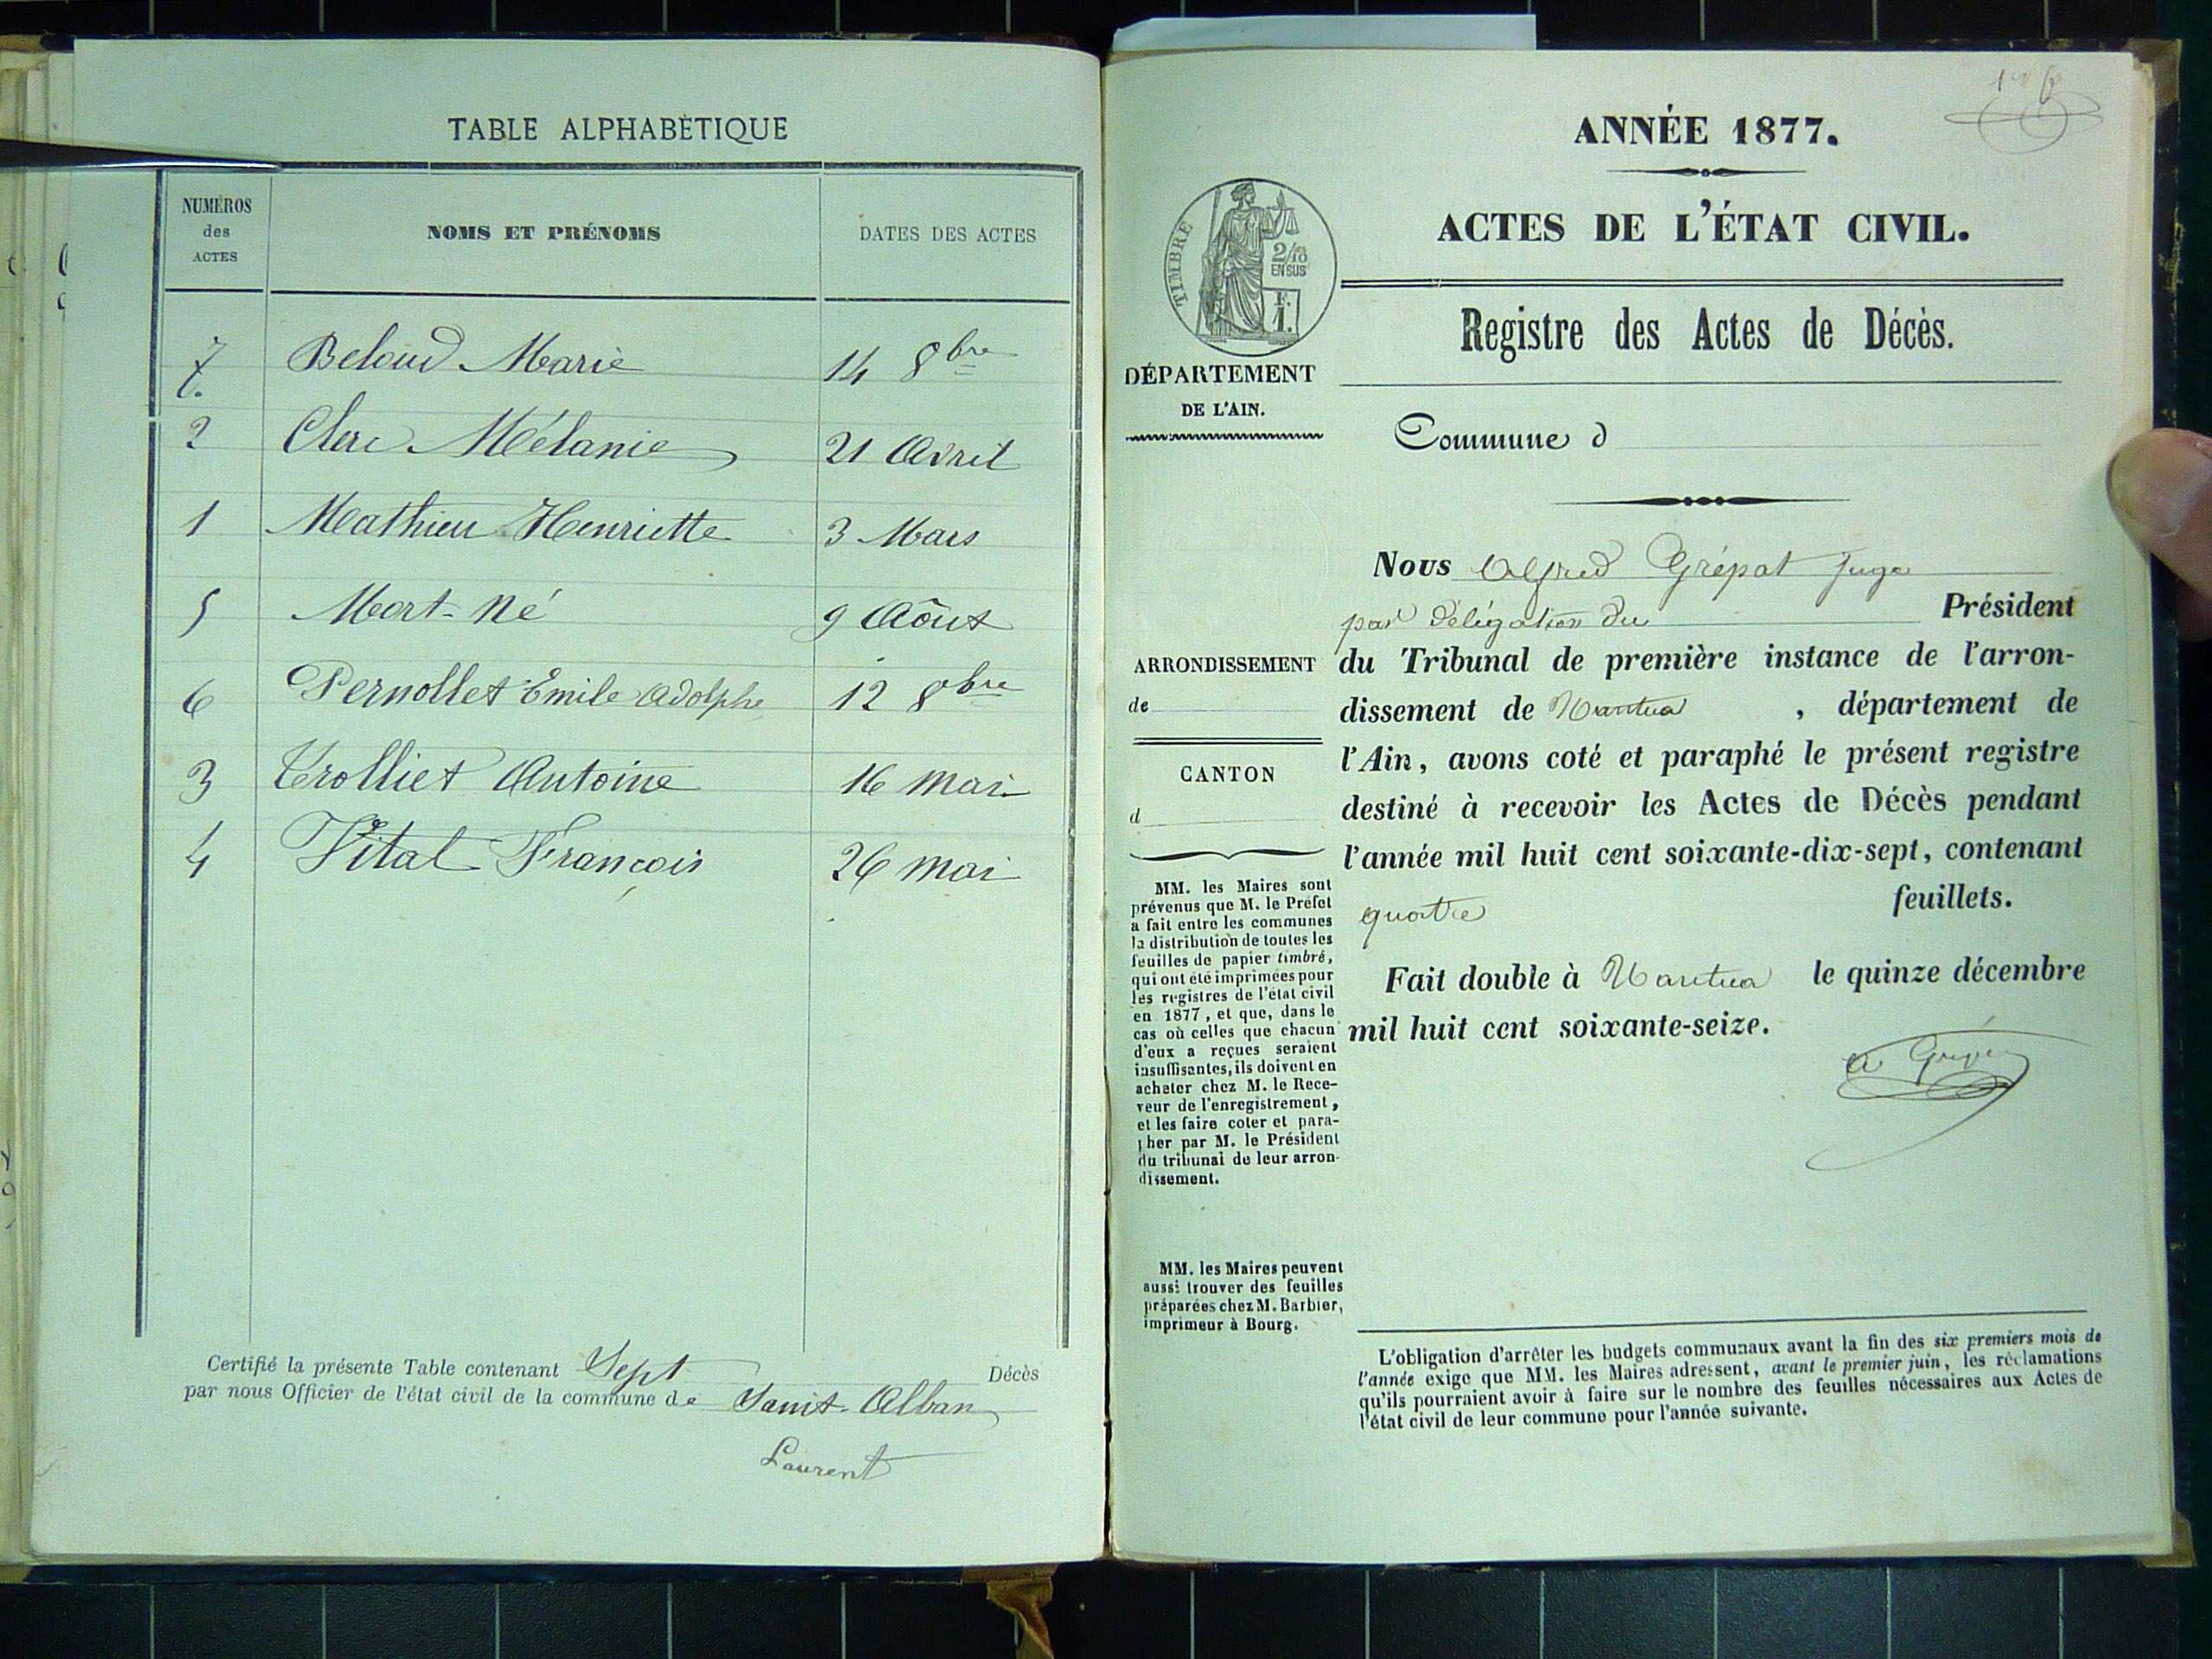 TABLE ALPHABÉTIQUE
NUMÉROS des ACTES NOMS ET PRÉNOMS DATES DES ACTES
7. Beloud Marie 14 8bre
2 Clerc Mélanie 21 Avril
1 Mathieu Henriette 3 Mars
5 Mort-Né 9 Aôut
6 Pernollet Emile Adolphe 12 8bre
3 Trolliet Antoine 16 mai
4 Vital François 26 mai
Certifié la présente Table contenant Sept Décès
par nous Officier de l'état civil de la commune de Saint-Alban
Laurent
ANNÉE 1877.
ACTES DE L'ÉTAT CIVIL.
TIMBRE
2/10
EN SUS
F.
1.
Registre des Actes de Décès.
DÉPARTEMENT
DE L'AIN.
Commune d
Nous Alfred Grépat Juge
par délégation du Président
du Tribunal de première instance de l'arron-
dissement de Nantua, département de
l'Ain, avons coté et paraphé le présent registre
destiné à recevoir les Actes de Décès pendant
l'année mil huit cent soixante-dix-sept, contenant
quatre feuillets.
Fait double à Nantua le quinze décembre
mil huit cent soixante-seize.
ARRONDISSEMENT
de
CANTON
d
MM. les Maires sont
prévenus que M. le Préfet
a fait entre les communes
la distribution de toutes les
feuilles de papier timbré,
qui ont été imprimées pour
les registres de l'état civil
en 1877, et que, dans le
cas où celles que chacun
d'eux a reçues seraient
insuffisantes, ils doivent en
acheter chez M. le Rece-
veur de l'enregistrement,
et les faire coter et para-
pher par M. le Président
du tribunal de leur arron-
dissement.
MM. les Maires peuvent
aussi trouver des feuilles
préparées chez M. Barbier,
imprimeur à Bourg.
L'obligation d'arrêter les budgets communaux avant la fin des six premiers mois de
l'année exige que MM. les Maires adressent, avant le premier juin, les réclamations
qu'ils pourraient avoir à faire sur le nombre des feuilles nécessaires aux Actes de
l'état civil de leur commune pour l'année suivante.